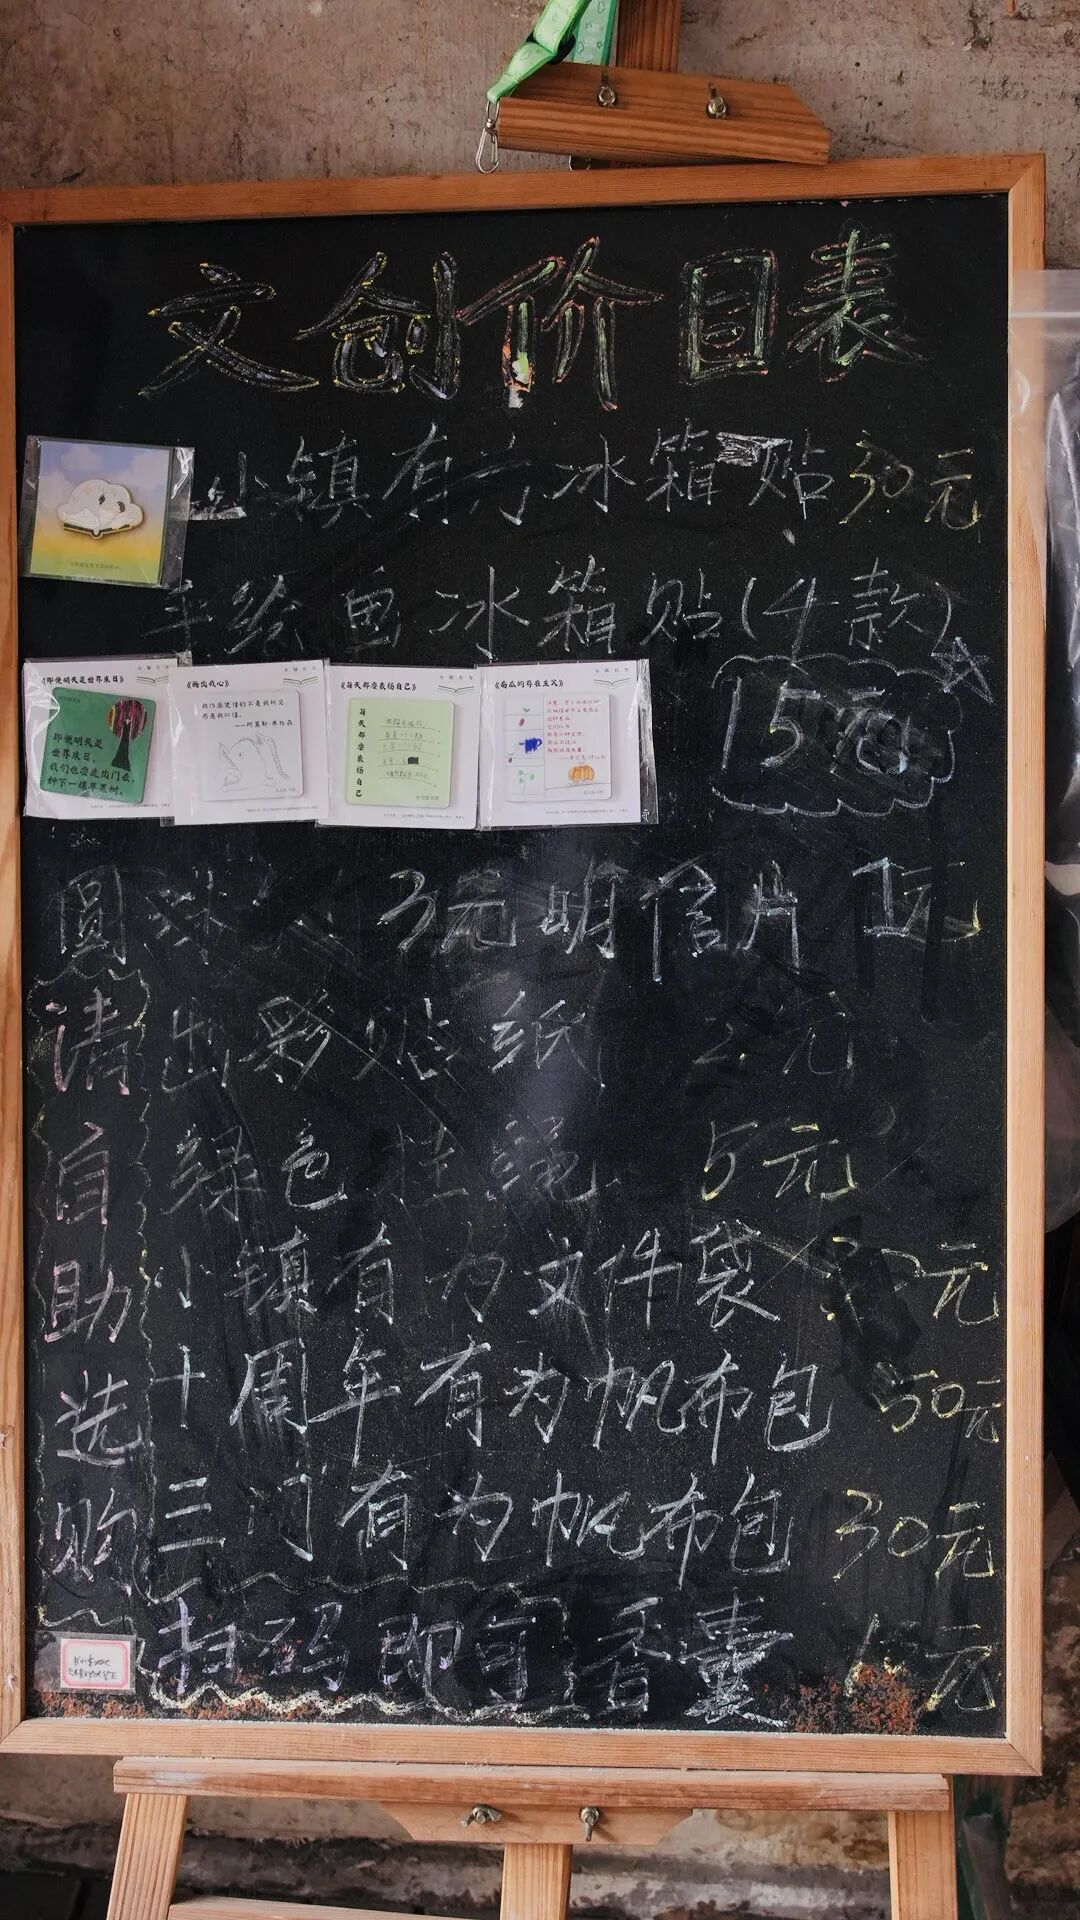 文创价目表
小镇有为冰箱贴30元
手绘鱼冰箱贴(4款)
15元
《即使明天是世界末日》
即使明天是
世界末日,
我们也要走出门去,
种下一棵苹果树。
《画出我心》
我作画凭借的不是我所见
而是我所信。
《每天都要表扬自己》
每天都要表扬自己
《南瓜的存在主义》
圆珠 3元 明信片 1元
请自助选购
出彩贴纸 2元
绿色挂绳 5元
小镇有为文件袋 元
十周年有为帆布包 50元
三门有为帆布包 30元
扫码即可 香囊 元